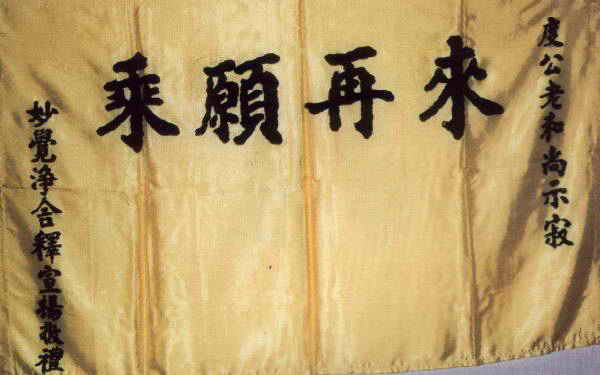 度公老和尚示寂
乘願再來
妙覺淨舍釋宣揚敬禮